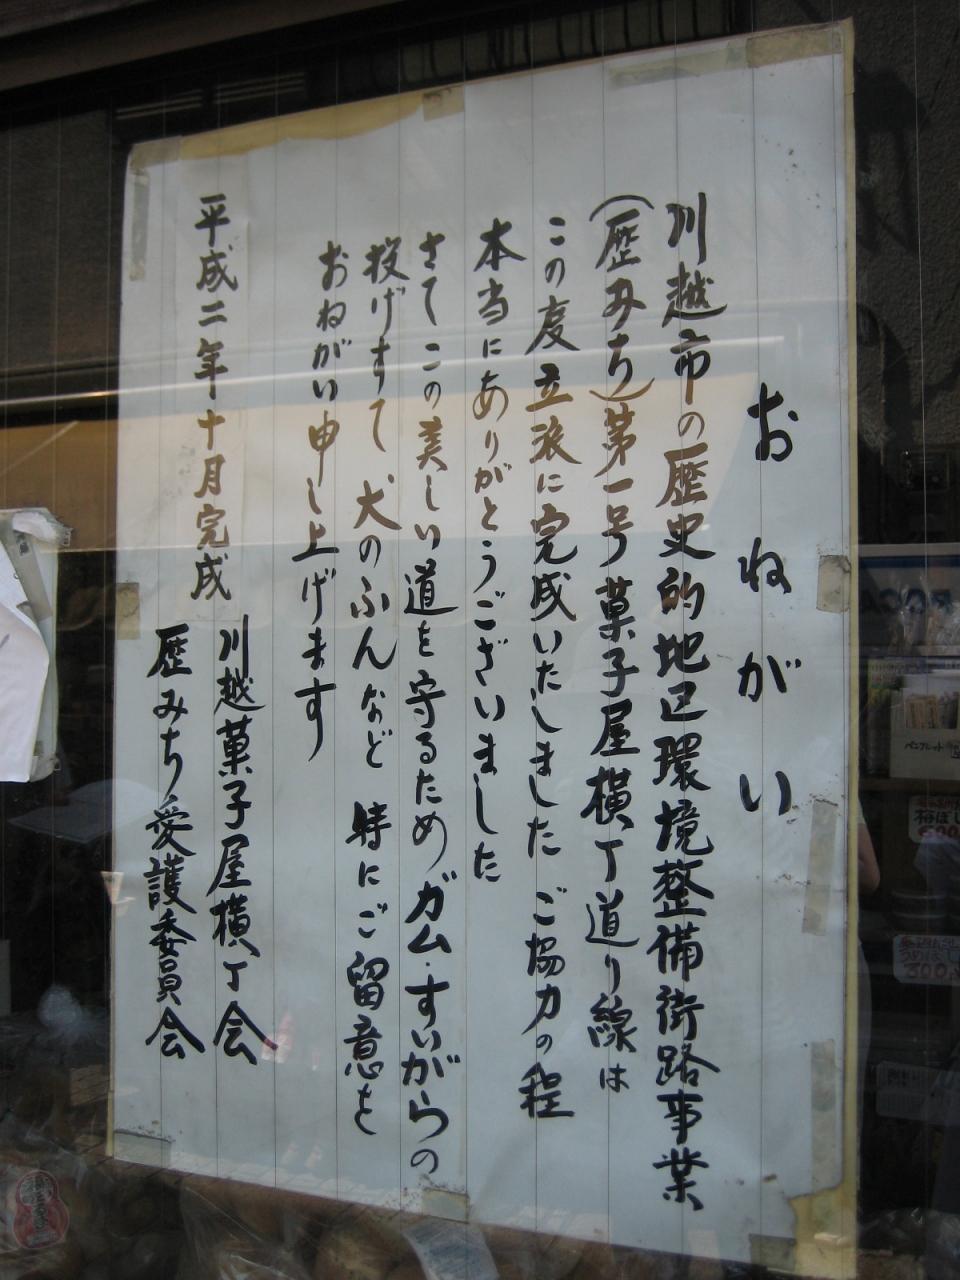 おねがい
川越市の歴史的地区環境整備街路事業
(歴みち)第一号菓子屋横丁道り線は
この度立派に完成いたしました ご協力の程
本当にありがとうございました
さてこの美しい道を守るため ガム・すいがらの
投げすて、犬のふんなど 特にご留意を
おねがい申し上げます
平成二年十月完成
川越菓子屋横丁会
歴みち愛護委員会
パンフレット
300